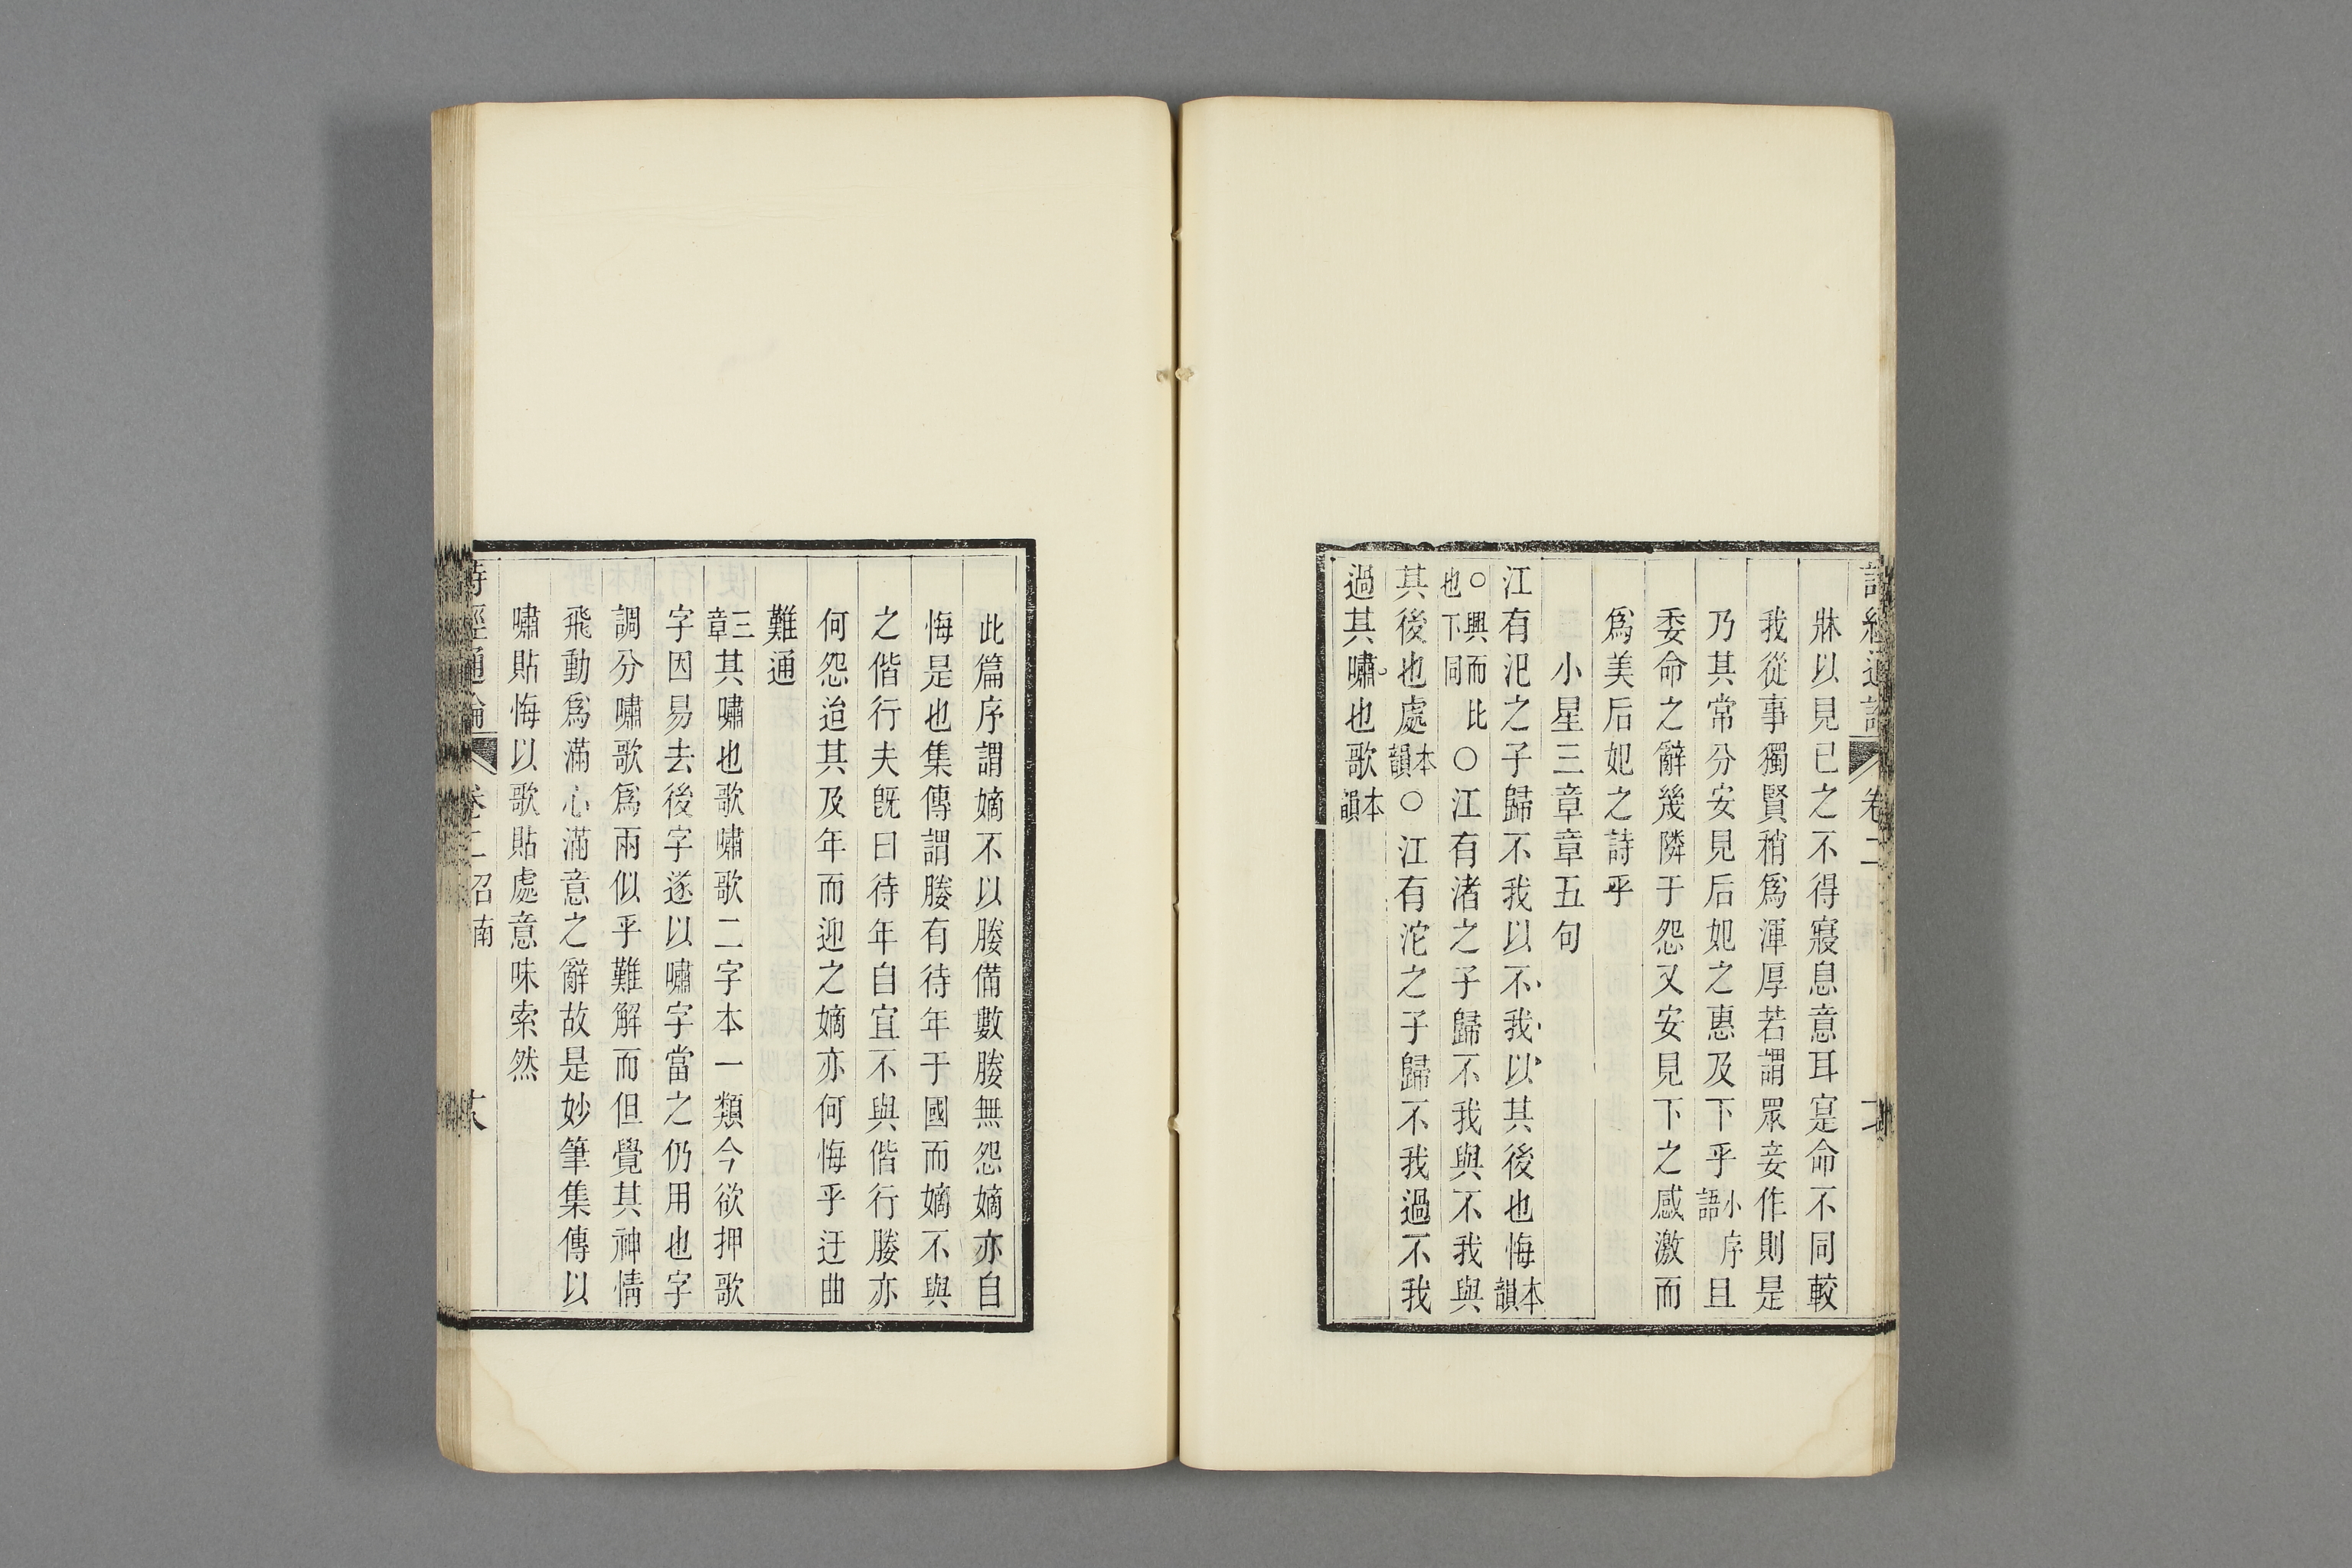 牀以見已之不得寢息意耳寔命不同較
我從事獨賢稍爲渾厚若謂眾妾作則是
乃其常分安見后妃之惠及下乎小序語且
委命之辭幾隣于怨又安見下之感激而
爲美后妃之詩乎
小星三章章五句
江有汜之子歸不我以不我以其後也悔本韻
○興而比也下同○江有渚之子歸不我與不我與
其後也處本韻○江有沱之子歸不我過不我
過其嘯也歌本韻
此篇序謂嫡不以媵備數媵無怨嫡亦自
悔是也集傳謂媵有待年于國而嫡不與
之偕行夫旣曰待年自宜不與偕行媵亦
何怨迨其及年而迎之嫡亦何悔乎迂曲
難通
三章其嘯也歌嘯歌二字本一類今欲押歌
字因易去後字遂以嘯字當之仍用也字
調分嘯歌爲兩似乎難解而但覺其神情
飛動爲滿心滿意之辭故是妙筆集傳以
嘯貼悔以歌貼處意味索然
詩經通論 卷二召南